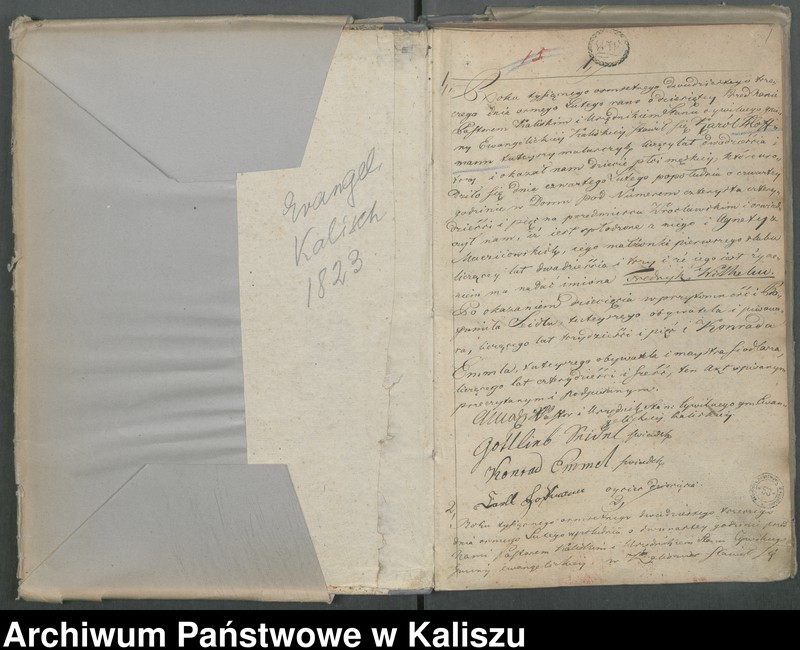 Evangel.
Kalisch
1823.
1.
Roku tysiącznego ośmsetnego dwudziestego trze-
ciego dnia ósmego Lutego rano o dziesiątey, Przed nami
Pastorem Kaliskim i Urzędnikiem Stanu Cywilnego gmi-
ny Ewangelickiey Kaliskiey, stawił się Karol Hoff-
mann tuteyszy liczący lat dwadzieścia i
trzy i okazał nam dziecię płci męskiey, które uro-
dziło się dnia czwartego Lutego popołudniu o czwartey
godzinie w Domu pod Numerem czterysta cztery-
dzieści i pięć na przedmieściu Wrocławskim i oświad-
czył nam, iż jest spłodzone z niego i Agnetą z
iego małżonki pierwszego ślubu
liczącey lat dwadzieścia i trzy i że iego jest życze-
niem ma nadać imiona Fredryk Wilhelm.
Po okazaniem dziecięcia w przytomności
Seidla, tuteyszego obywatela i
liczącego lat trzydzieści i pięć i Konrada
Emmla, tuteyszego obywatela i maystra siodlarza,
liczącego lat czterydzieści i sześć, ten Akt spisanym
przeczytanym i podpisanym.
Pastor i Urzędnik Stanu Cywilnego gm. Ewan-
gelickiey Kaliskiey
Gottlieb Seidel świadek
Konrad Emmel świadek
Carl Hoffmann oyciec dziecięcia.
2.
Roku tysiącznego ośmsetnego dwudziestego trzeciego
dnia ósmego Lutego popołudniu o godzinie przed
Nami Pastorem Kaliskim i Urzędnikiem Stanu Cywilnego
gminy Ewangelickiey, w stawił się
Archiwum Państwowe w Kaliszu